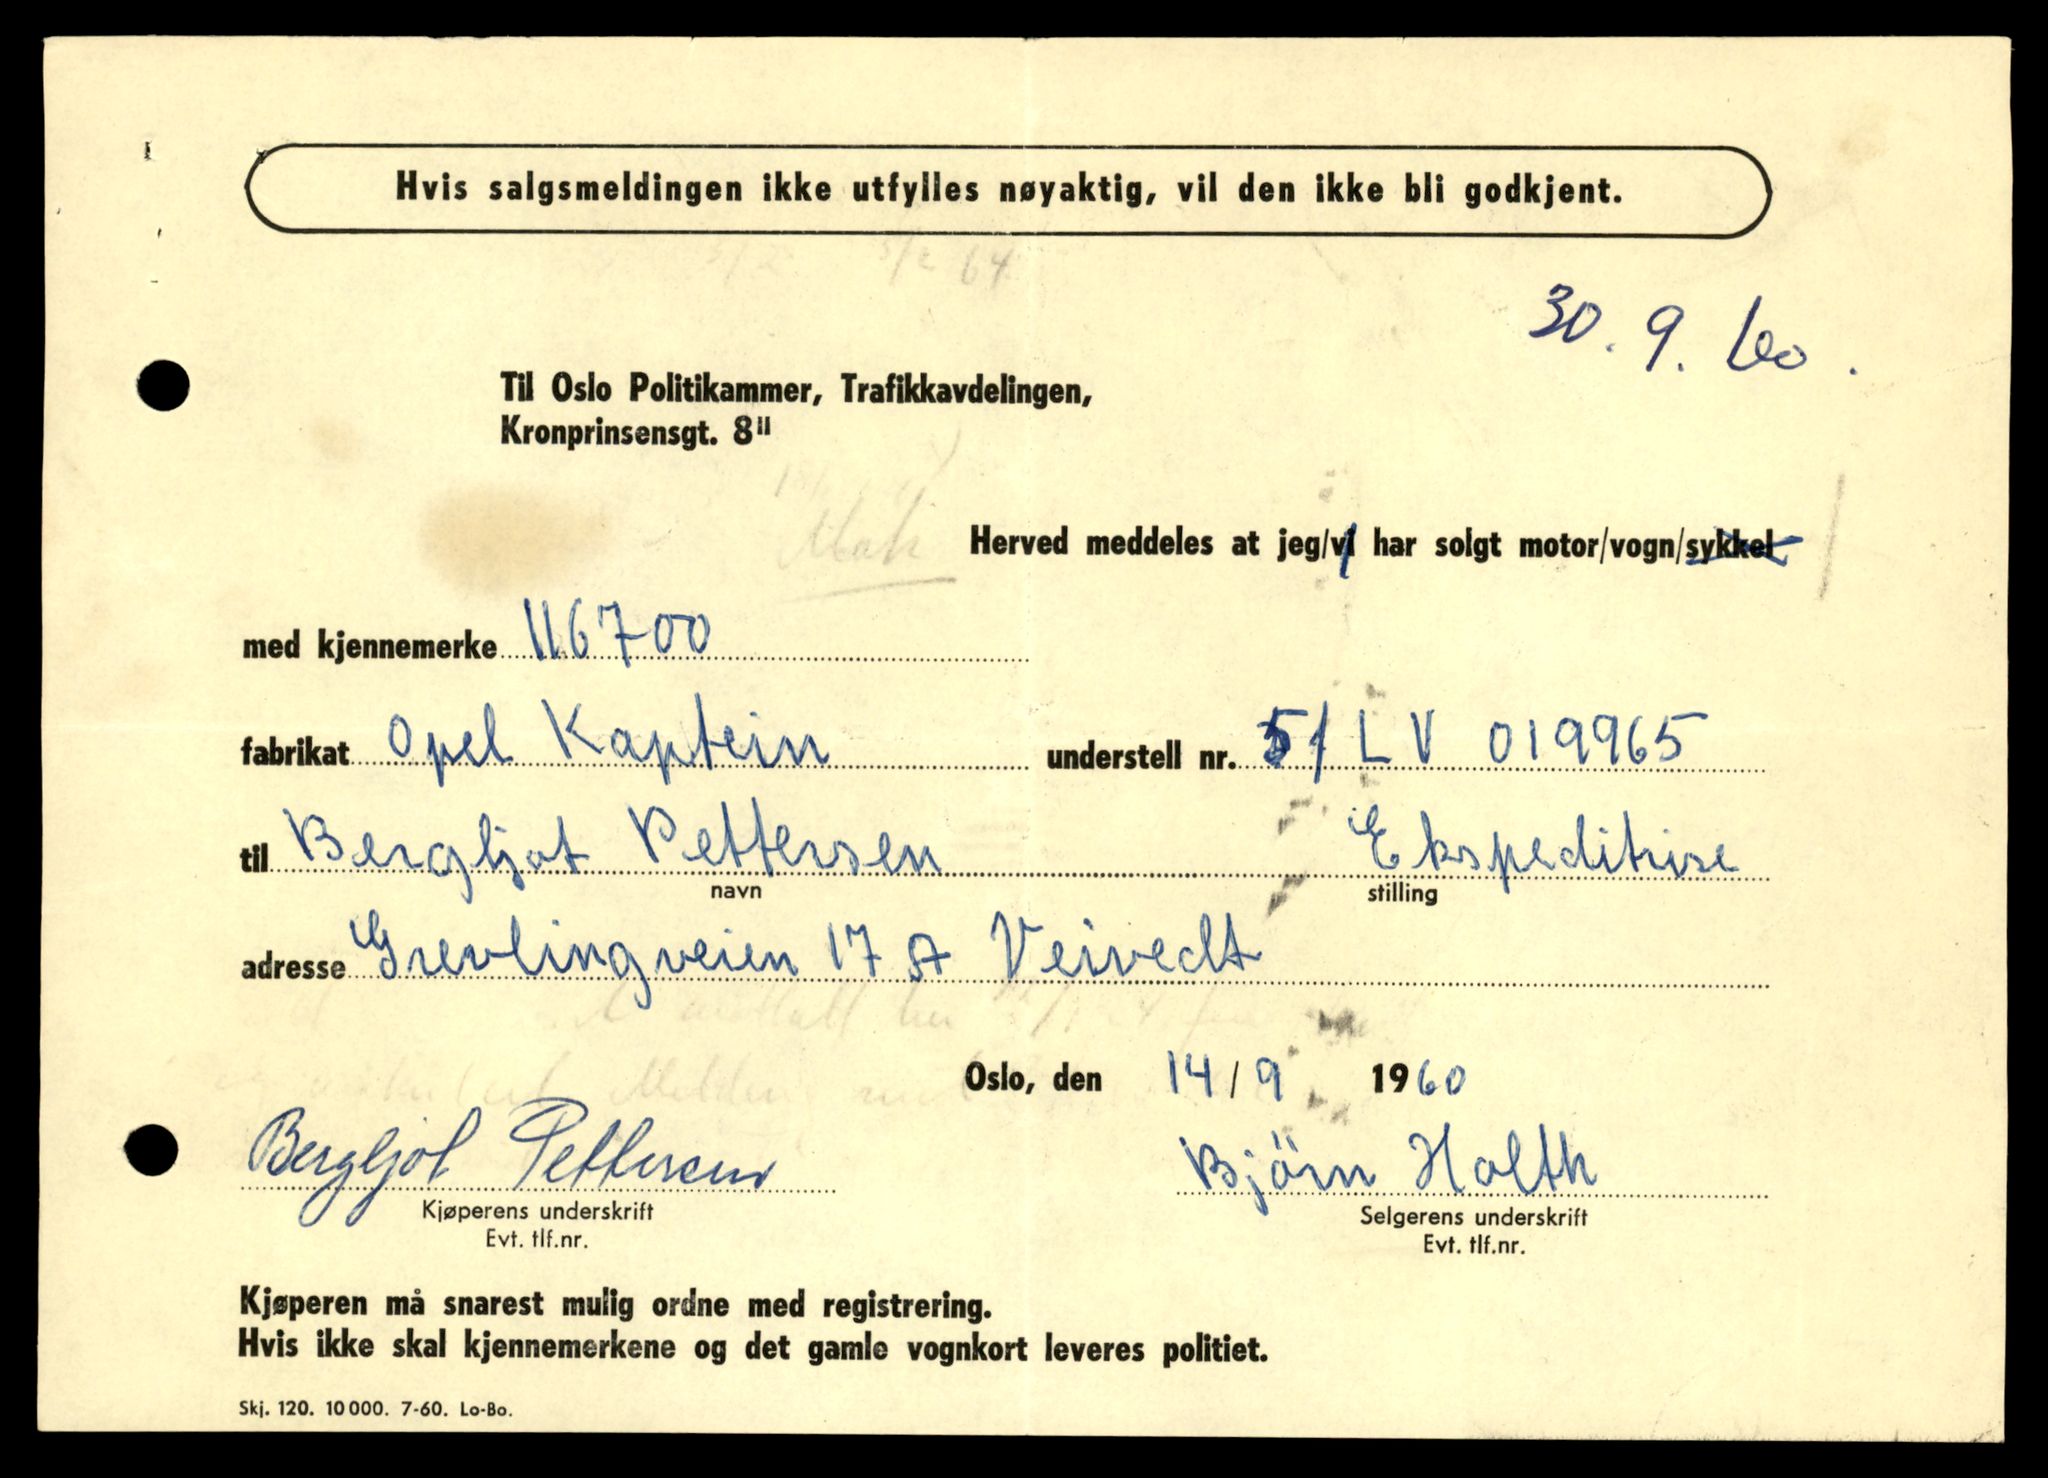 Hvis salgsmeldingen ikke utfylles nøyaktig, vil den ikke bli godkjent.
5/2 64
30. 9. 60.
Til Oslo Politikammer, Trafikkavdelingen,
Kronprinsensgt. 8II
Herved meddeles at jeg/vi har solgt motor/vogn/sykkel
med kjennemerke 116700
fabrikat Opel Kaptein understell nr. 51 LV 019965
til Bergljot Pettersen Ekspeditrise
navn stilling
adresse Grevlingveien 17 A Veivedt
Oslo, den 14/9 1960
Bergljot Pettersen Björn Holth
Kjøperens underskrift Selgerens underskrift
Evt. tlf.nr. Evt. tlf.nr.
Kjøperen må snarest mulig ordne med registrering.
Hvis ikke skal kjennemerkene og det gamle vognkort leveres politiet.
Skj. 120. 10 000. 7-60. Lo-Bo.